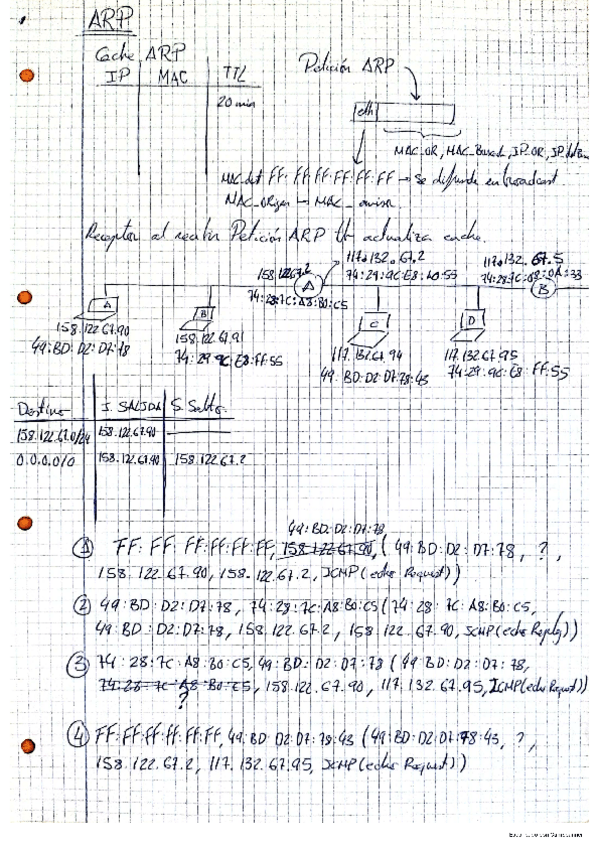 ARP
Cache ARP
IP MAC TTL
20 min
Petición ARP
eth
MAC_OR, MAC_Buscada, IP_OR, IP
MAC_dest FF:FF:FF:FF:FF:FF → se difunde en broadcast.
MAC_origen → MAC_emisor.
Receptor al recibir Petición ARP actualiza cache.
158.122.67.2
74:28:7C:A8:B0:C5
A
117.132.67.2
74:29:9C:E8:
117.132.67.5
B
A
158.122.67.90
49:BD:D2:D7:78
B
158.122.67.91
74:29:9C:E8:FF:55
C
117.132.67.94
49:BD:D2:D7:78:43
D
117.132.67.95
74:29:9C:E8:FF:55
Destino I. SALIDA S. Salto
158.122.67.0/24 158.122.67.90
0.0.0.0/0 158.122.67.90 158.122.67.2
49:BD:D2:D7:78
① FF:FF:FF:FF:FF:FF, 158.122.67.90, (49:BD:D2:D7:78, ?,
158.122.67.90, 158.122.67.2, ICMP (echo Request))
② 49:BD:D2:D7:78, 74:28:7C:A8:B0:C5 (74:28:7C:A8:B0:C5,
49:BD:D2:D7:78, 158.122.67.2, 158.122.67.90, ICMP (echo Reply))
③ 74:28:7C:A8:B0:C5, 49:BD:D2:D7:78 (49:BD:D2:D7:78,
74:28:7C:A8:B0:C5, 158.122.67.90, 117.132.67.95, ICMP (echo Request))
?
④ FF:FF:FF:FF:FF:FF, 49:BD:D2:D7:78:43 (49:BD:D2:D7:78:43, ?,
158.122.67.2, 117.132.67.95, ICMP (echo Request))